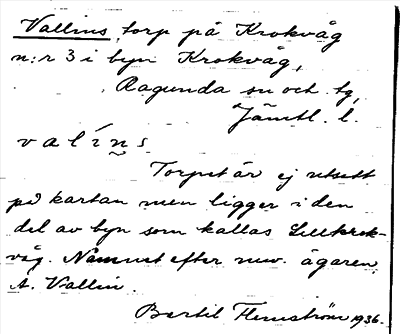 Vallins, torp på Krokvåg
n:r 3 i byn Krokvåg,
Ragunda sn och tg,
Jämtl. l.
valíns
Torpet är ej utsatt
på kartan men ligger i den
del av byn som kallas Lillkrok-
våg. Namnet efter nuv. ägaren
A. Vallin.
Bertil Flemström 1936.